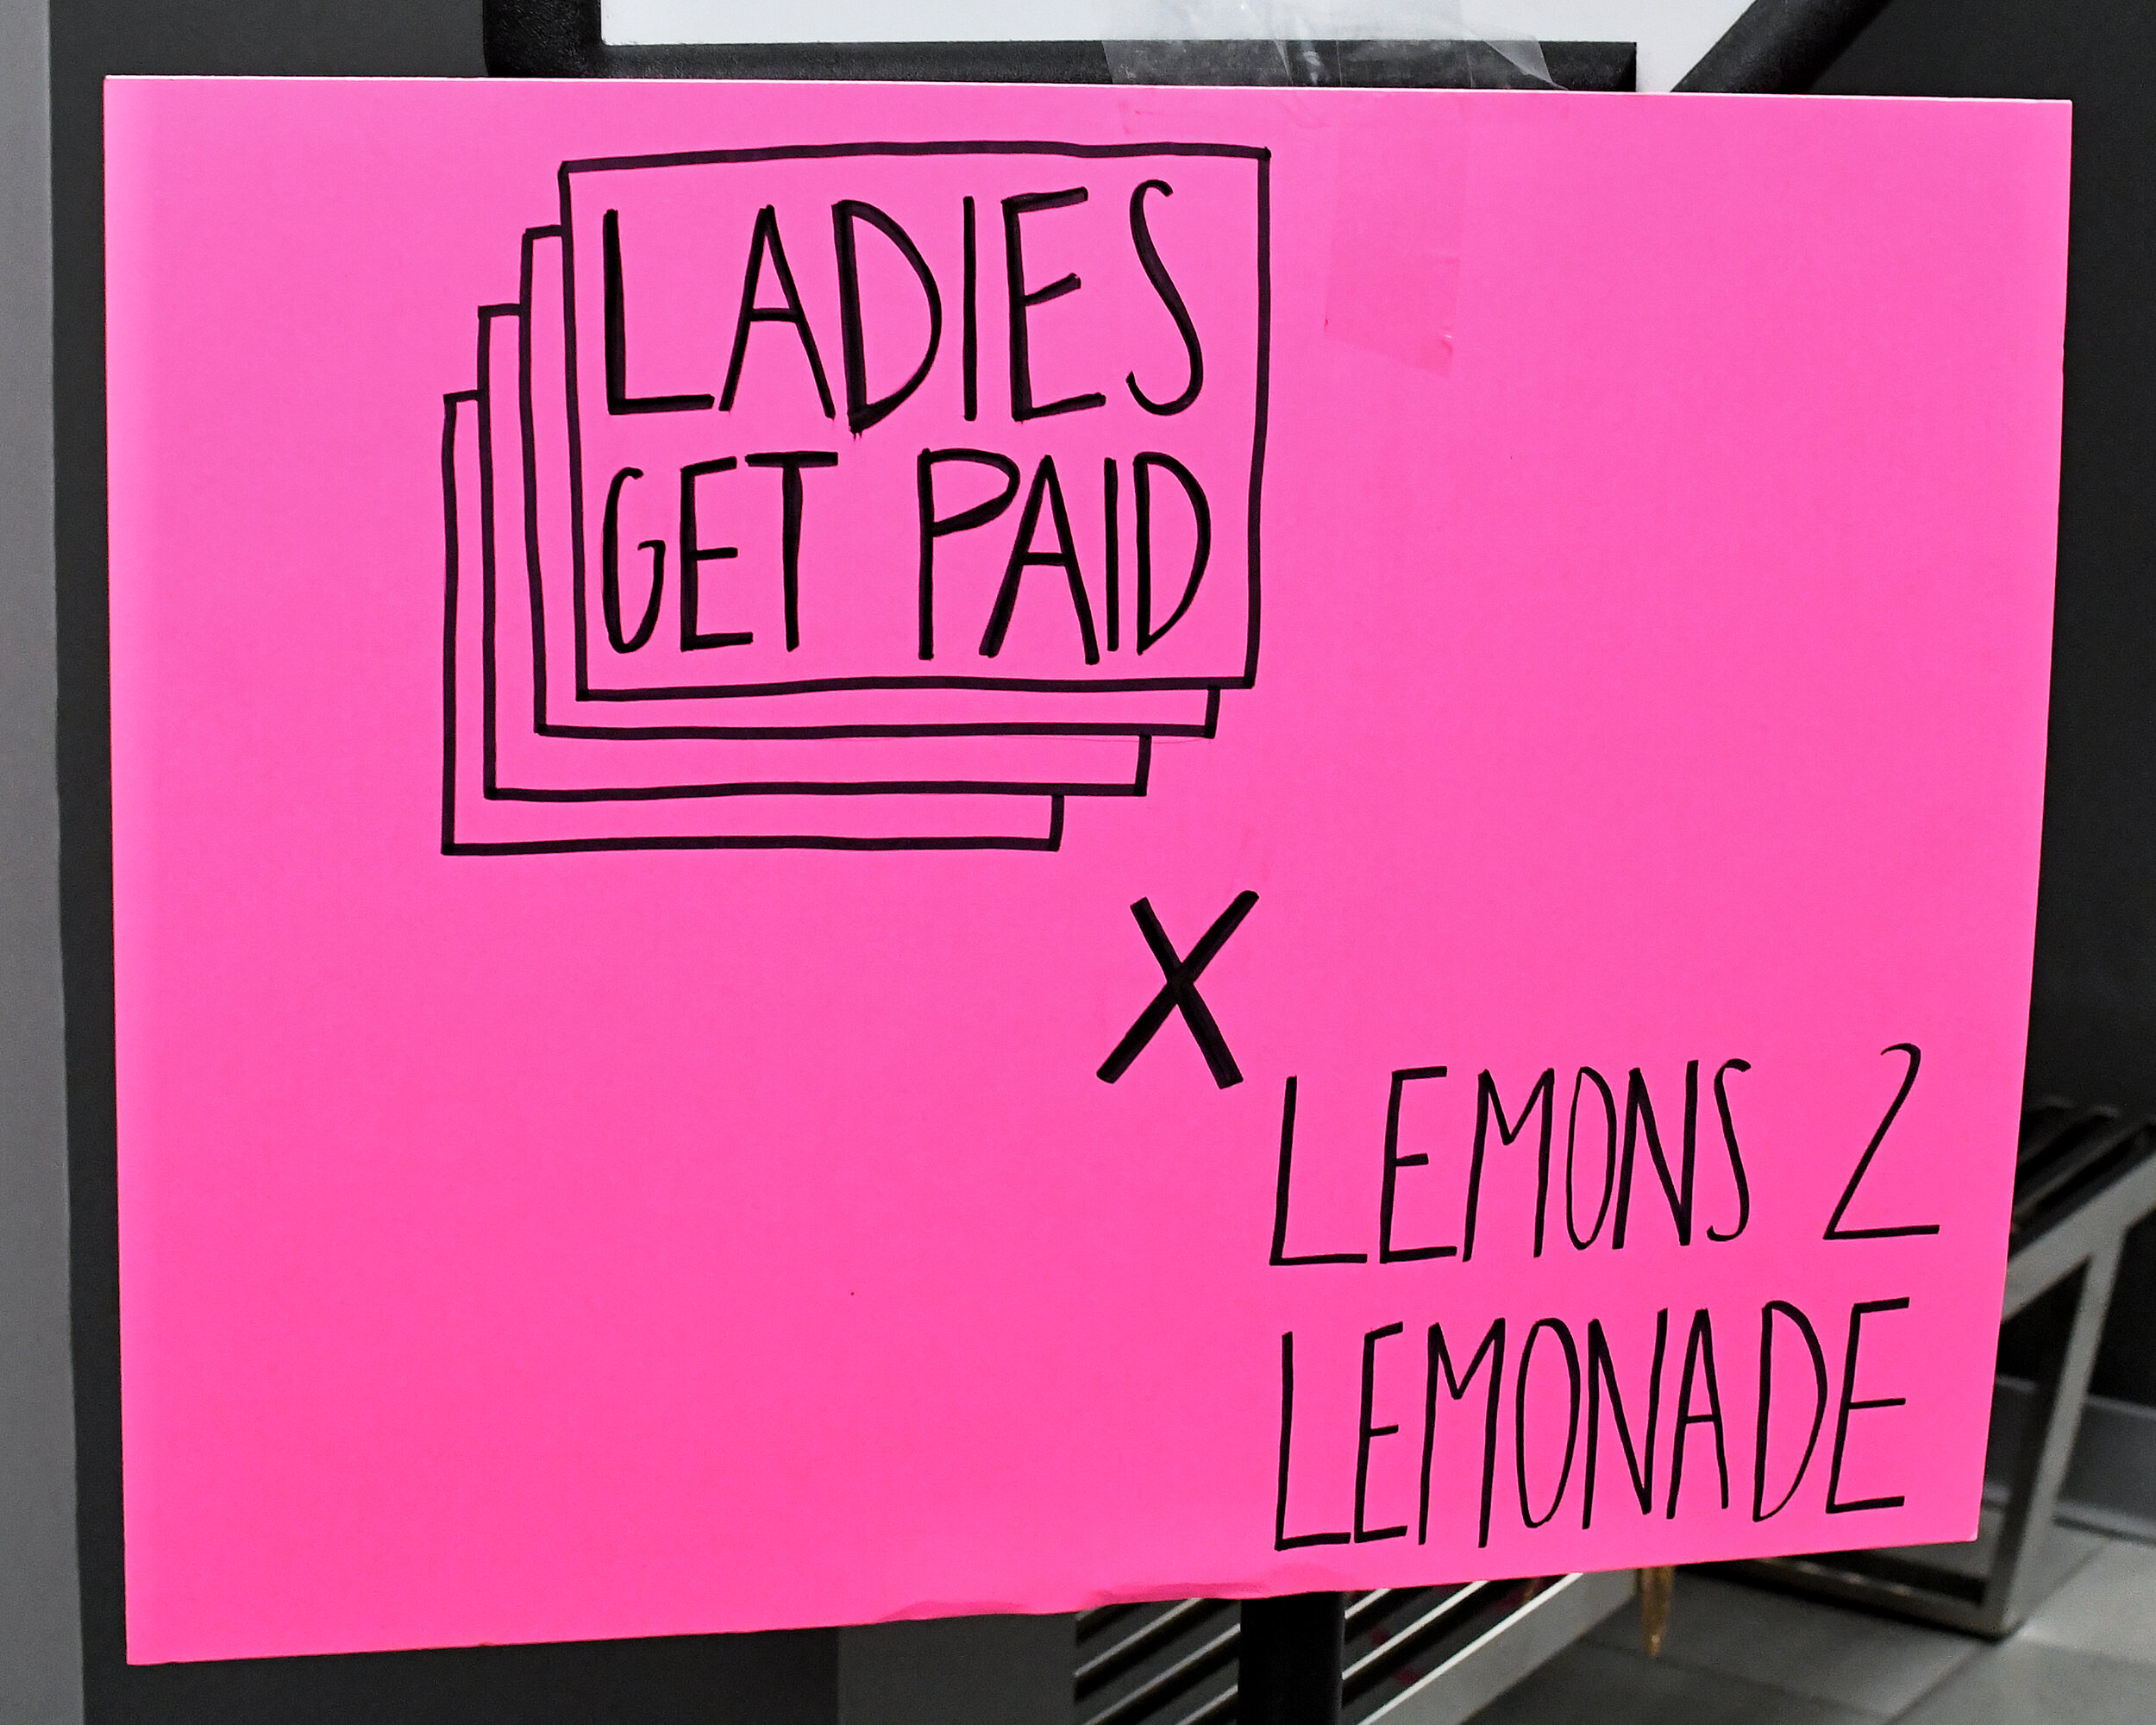 LADIES
GET PAID
X
LEMONS 2
LEMONADE